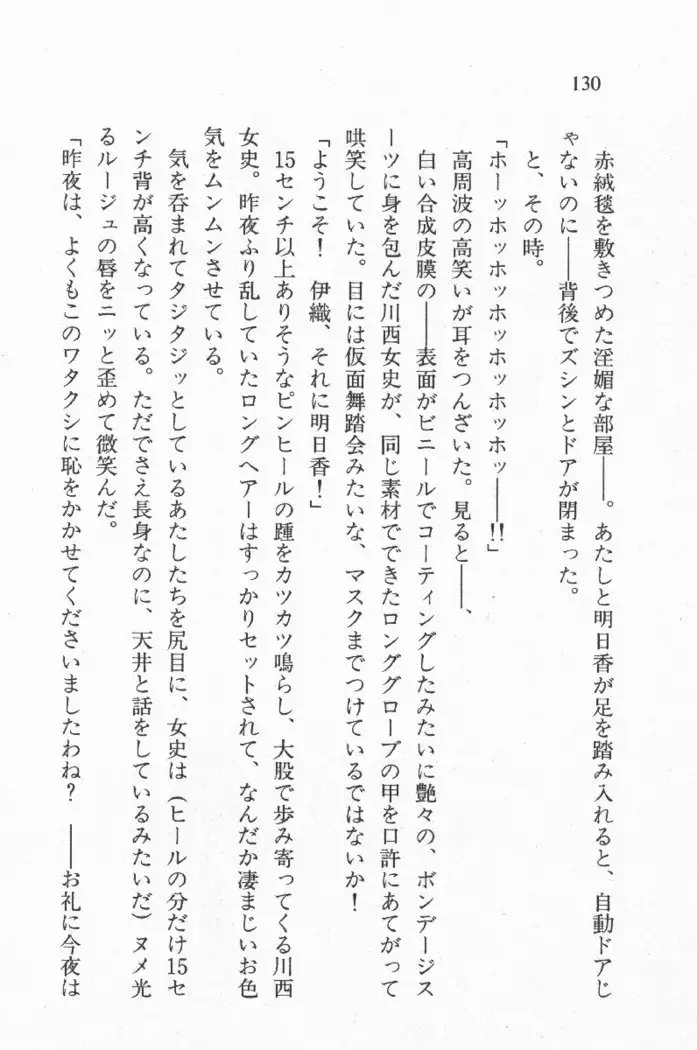 130
赤絨毯を敷きつめた淫媚な部屋――。あたしと明日香が足を踏み入れると、自動ドアじ
ゃないのに――背後でズシンとドアが閉まった。
と、その時。
「ホーッホッホッホッホッホッホッ――!!」
高周波の高笑いが耳をつんざいた。見ると――、
白い合成皮膜の――表面がビニールでコーティングしたみたいに艶々の、ボンデージス
ーツに身を包んだ川西女史が、同じ素材でできたロンググローブの甲を口許にあてがって
哄笑していた。目には仮面舞踏会みたいな、マスクまでつけているではないか！
「ようこそ！　伊織、それに明日香！」
15センチ以上ありそうなピンヒールの踵をカツカツ鳴らし、大股で歩み寄ってくる川西
女史。昨夜ふり乱していたロングヘアーはすっかりセットされて、なんだか凄まじいお色
気をムンムンさせている。
気を呑まれてタジタジッとしているあたしたちを尻目に、女史は（ヒールの分だけ15セ
ンチ背が高くなっている。ただでさえ長身なのに、天井と話をしているみたいだ）ヌメ光
るルージュの唇をニッと歪めて微笑んだ。
「昨夜は、よくもこのワタクシに恥をかかせてくださいましたわね？　――お礼に今夜は